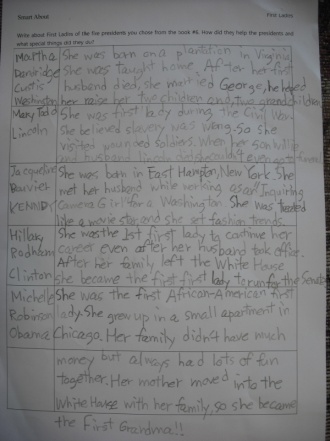 Smart About
First Ladies
Write about First Ladies of the five presidents you chose from the book #6. How did they help the presidents and what special things did they do?
Martha Dandridge Curtis Washington
She was born on a plantation in Virginia
She was taught home. After her first
husband died, she married George, he helped
her raise her two children and two grandchildren
Mary Todd Lincoln
She was first lady during the Civil War
She believed slavery was wrong. So she
visited wounded soldiers. When her son Willie
and husband Lincoln died she couldn't even go to funeral
Jacqueline Bouvier KENNEDY
She was born in East Hampton, New York. She
met her husband while working as an Inquiring
Camera Girl for a Washington She was treated
like a movie star, and she set fashion trends.
Hillary Rodham Clinton
She was the 1st first lady to continue her
career even after her husband took office.
After her family left the White House
she became the first first lady to run for the Senate
Michelle Robinson Obama
She was the first African-American first
lady. She grew up in a small apartment in
Chicago. Her family didn't have much
money but always had lots of fun
together. Her mother moved into the
White House with her family, so she became
the First Grandma!!